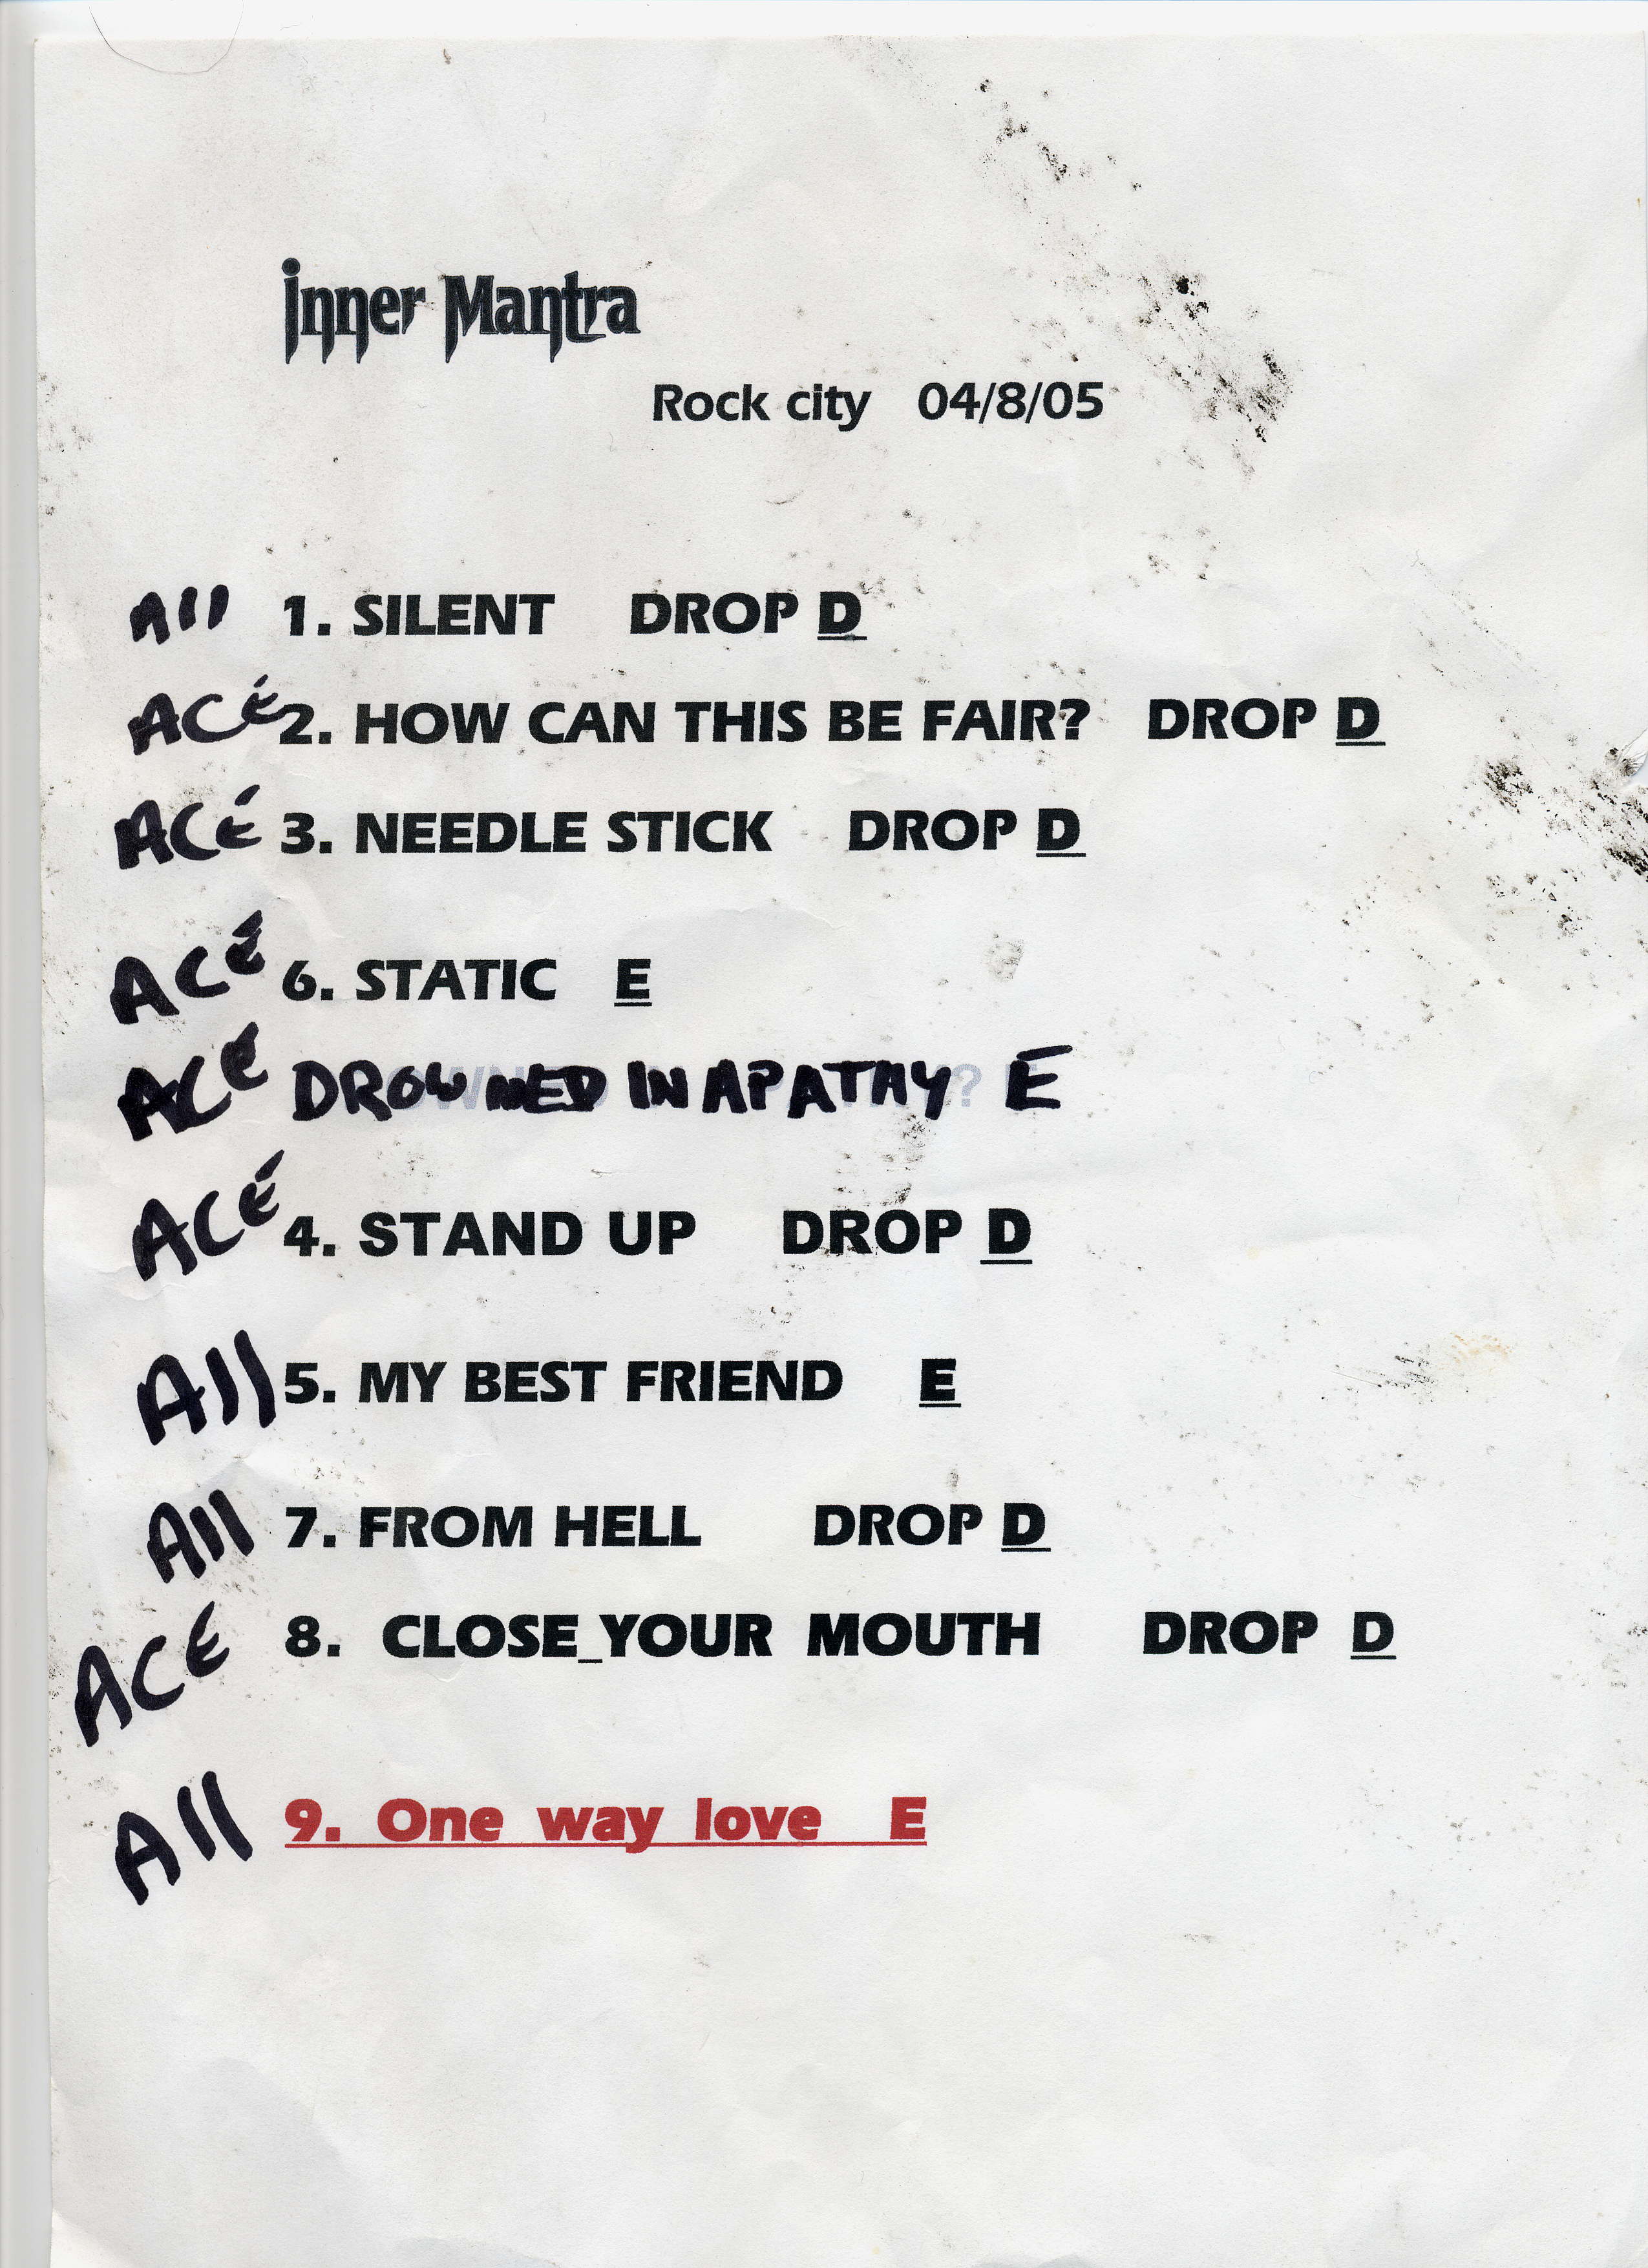 inner Mantra
Rock city 04/8/05
All 1. SILENT DROP D
ACE 2. HOW CAN THIS BE FAIR? DROP D
ACE 3. NEEDLE STICK DROP D
ACE 6. STATIC E
ACE DROWNED IN APATHY ? E
ACE 4. STAND UP DROP D
All 5. MY BEST FRIEND E
All 7. FROM HELL DROP D
ACE 8. CLOSE_YOUR MOUTH DROP D
All 9. One way love E